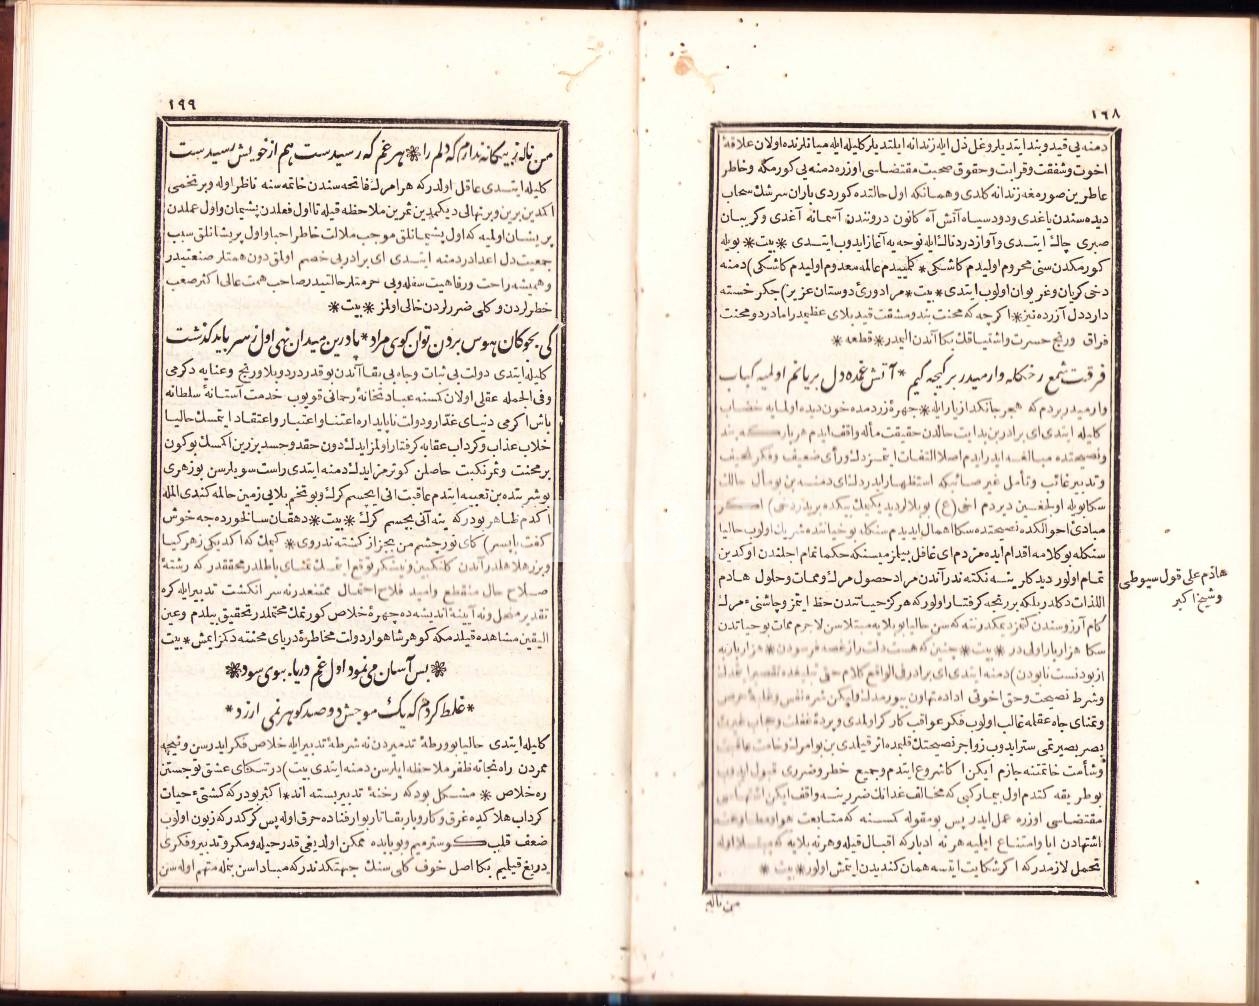 ١٦٨
دمنه یی قید وبند ایتدیلر وغل ذل ایله زندانه ایلتدیلر کلیله ایله میانلرنده اولان علاقهٔ
اخوت وشفقت وقرابت وحقوق صحبت مقتضاسی اوزره دمنه یی کورمکه وخاطر
عاطرین صورمغه زندانه کلدی وهمانکه اول حالتده کوردی باران سرشك سحاب
دیده سندن یاغدی ودود سیاه آتش آه کانون دروندن آسمانه آغدی وکریبان
صبری چاك ایتدی وآواز دردناك ایله نوحه یه آغاز ایدوب ایتدی * بیت * بویله
کورمکدن سنی محروم اولیدم کاشکی * کلمییدم عالمه معدوم اولیدم کاشکی) دمنه
دخی کریان وغریوان اولوب ایتدی * بیت * مرا دوریٔ دوستان عزیز) جکر خسته
دارد دل آزرده نیز * اکرچه که محنت بند ومشقت قید بلای عظیمدر اما درد ومحنت
فراق ورنج حسرت واشتیاقك بکا آندن الیمدر * قطعه *
فرقت شمع رخکله وارمیدر بر کیجه کیم * آتش غمده دل بریانم اولمیه کباب
وارمیدر بر دم که هجر جانکدازیله * چهرهٔ زردمده خون دیده اولمایه خضاب
کلیله ایتدی ای برادر بن بدایت حالدن حقیقت مأله واقف ایدم هربار که پند
ونصیحتده مبالغه ایدرایدم اصلا التفات ایتمزدك ورأی ضعیف وفکر نحیف
وتدبیر غائب وتأمل غیر صائبکه استظهار ایدردك ای دمنه بن بو مأل حالك
سکا بویله اولدیغین دیردم اخی (ع) بوبلالر دیدیکمك بیکده بریدر دخی) اکر
مبادیٔ احوالکده نصیحتده سکا اهمال ایدیدم سنکله بو خیانتده شریك اولوب حالیا
سنکله بو کلامه اقدام ایده مزدم ای غافل بیلمزمیسنکه حکما تمام اجلندن اوکدین
تمام اولور دیدکلرینه نکته ندر آندن مراد حصول مرك وممات وحلول هادم
اللذات دکلدر بلکه بر رنجه کرفتار اولور که هرکز حیاتندن حظ ایتمز وچاشنیٔ مرك
کام آرزوسندن کتمز دیمکدر نته که سن حالیا بو بلایه مبتلاسن لاجرم ممات بو حیاتدن
سکا هزار بار اولی در * بیت * چنین که هست دلت راز غصه فرسودن * هزار بار به
از بودنست نابودن) دمنه ایتدی ای برادر فی الواقع کلام حقی تبلیغده تقصیر ایتمدك
وشرط نصیحت وحق اخوتی اداده تهاون بیورمدك ولیکن شره نفس وغلبهٔ حرص
وتمنای جاه عقلمه غالب اولوب فکر عواقب کارکر اولمدی وپردهٔ غفلت وحجاب غیرت
بصر بصیرتمی ستر ایدوب زواجر نصیحتك قلبمده اثر قیلمدی بن بو امرك وخامت عاقبت
وشأمت خاتمتنه جازم ایکن اکا شروع ایتدم وجمیع خطر وضرری قبول ایدوب
بو طریقه کتدم اول بیمار کبی که مخالف غدانك ضررینه واقف ایکن اشتهاسی
مقتضاسی اوزره عمل ایدر پس بو مقوله کسنه که متابعت هوا ومطاوعت
اشتهادن ابا وامتناع ایلمیه هر نه ادبار که اقبال قیله وهر نه بلایه که مبتلا اوله
تحمل لازمدر که اکر شکایت ایتسه همان کندیدن ایتمش اولور * بیت *
من ناله
هاذم علی قول سیوطی
وشیخ اکبر
١٩٩
من ناله ز بیکانه ندارم که دلم را * هر غم که رسیدست هم از خویش رسیدست
کلیله ایتدی عاقل اولدر که هر امرك فاتحه سندن خاتمه سنه ناظر اوله وبر تخمی
اکمدین برین وبر نهالی دیکمدین ثمرین ملاحظه قیله تا اول فعلدن پشیمان واول عملدن
پریشان اولمیه که اول پشیمانلق موجب ملالت خاطر احبا واول پریشانلق سبب
جمعیت دل اعدادر دمنه ایتدی ای برادر بی خصم اولمق دون همتلر صنعتیدر
وهمیشه راحت ورفاهیت سفله وبی حرمتلر حالتیدر صاحب همت عالی اکثر صعب
خطرلردن وکلی ضررلردن خالی اولمز * بیت *
کی بچوکان هوس بردن توان کوی مراد * پا درین میدان نهی اول ز سر باید کذشت
کلیله ایتدی دولت بی ثبات وجاه بی بقا آندن نه قدر درد وبلا ورنج وعنایه دکرمی
وفی الجمله عقلی اولان کسنه عبادتخانهٔ رحمانی قویوب خدمت آستانهٔ سلطانه
باش اکرمی دنیای غدار ودولت ناپایداره اعتنا واعتبار واعتقاد ایتمسك حالیا
خلاب عذاب وکرداب عقابه کرفتار اولمز ایدك دون حقد وحسد بزرین اکمسك بو کون
بر محنت وثمر نکبت حاصلن کوترمز ایدك دمنه ایتدی راست سویلرسن بو زهری
بو شربته بن تعبیه ایتدم عاقبت انی ایچسم کرك وبو تخم بلایی زمین حالمه کندی المله
اکدم ظاهر بودر که ینه آنی بچسم کرك * بیت * دهقان سالخورده چه خوش
کفت با پسر) کای نور چشم من بجز از کشته ندروی * کیمك که اکدیکی زهر کیا
وبزر هلاهلدر آندن کل انکبین ونیشکر توقع ایتمك تمنای باطلدر محققدر که رشتهٔ
صلاح حال منقطع وامید فلاح احتمال ممتنعدر نه سر انکشت تدبیر ایله کره
تقدیر منحل ونه آیینهٔ اندیشه ده چهرهٔ خلاص کورنمك محتملدر تحقیق بیلدم وعین
الیقین مشاهده قیلدمکه کوهر شاهوار دولت مخاطرهٔ دریای محنته دکز ایمش * بیت
* بس آسان می نمود اول غم دریا ببوی سود *
* غلط کردم که یك موجش دو صد کوهر نمی ارزد *
کلیله ایتدی حالیا بو ورطهٔ تدمیردن نه شرطهٔ تدبیر ایله خلاص فکر ایدرسن ونیجه
ممردن راه نجاته ظفر ملاحظه ایلرسن دمنه ایتدی بیت) در تنکنای عشق تو جستن
ره خلاص * مشکل بود که رخنهٔ تدبیر بسته اند * اکثر بودر که کشتیٔ حیات
کرداب هلاکده غرق وکار وبار بقا تاربوار فناده حرق اوله پس کرکدر که زبون اولوب
ضعف قلب کوسترمیم وبو بابده ممکن اولدیغی قدر حیله ومکر وتدبیر وفکری
دریغ قیلمیم بکا اصل خوف کلی سنك جهتکدندر که مبادا سن بنمله متهم اوله سن